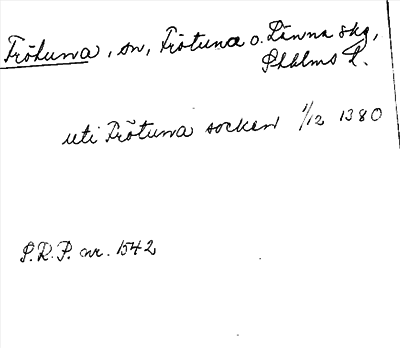 Frötuna, sn, Frötuna o. Länna skg,
Sthlms l.
uti Frötuna socken 1/12 1380
S.R.P. nr. 1542